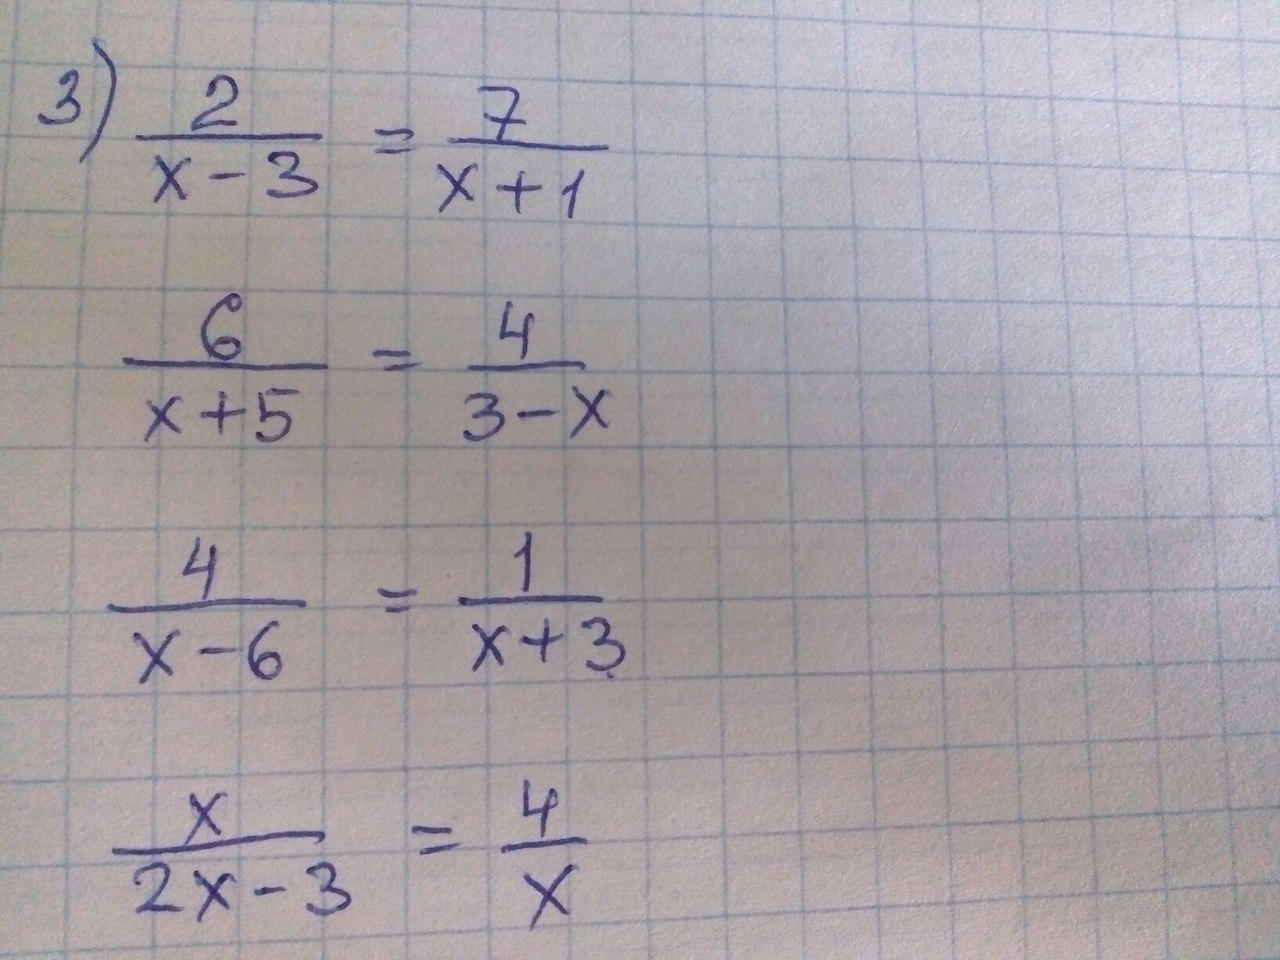 3) 2/(x-3) = 7/(x+1)
6/(x+5) = 4/(3-x)
4/(x-6) = 1/(x+3)
x/(2x-3) = 4/x